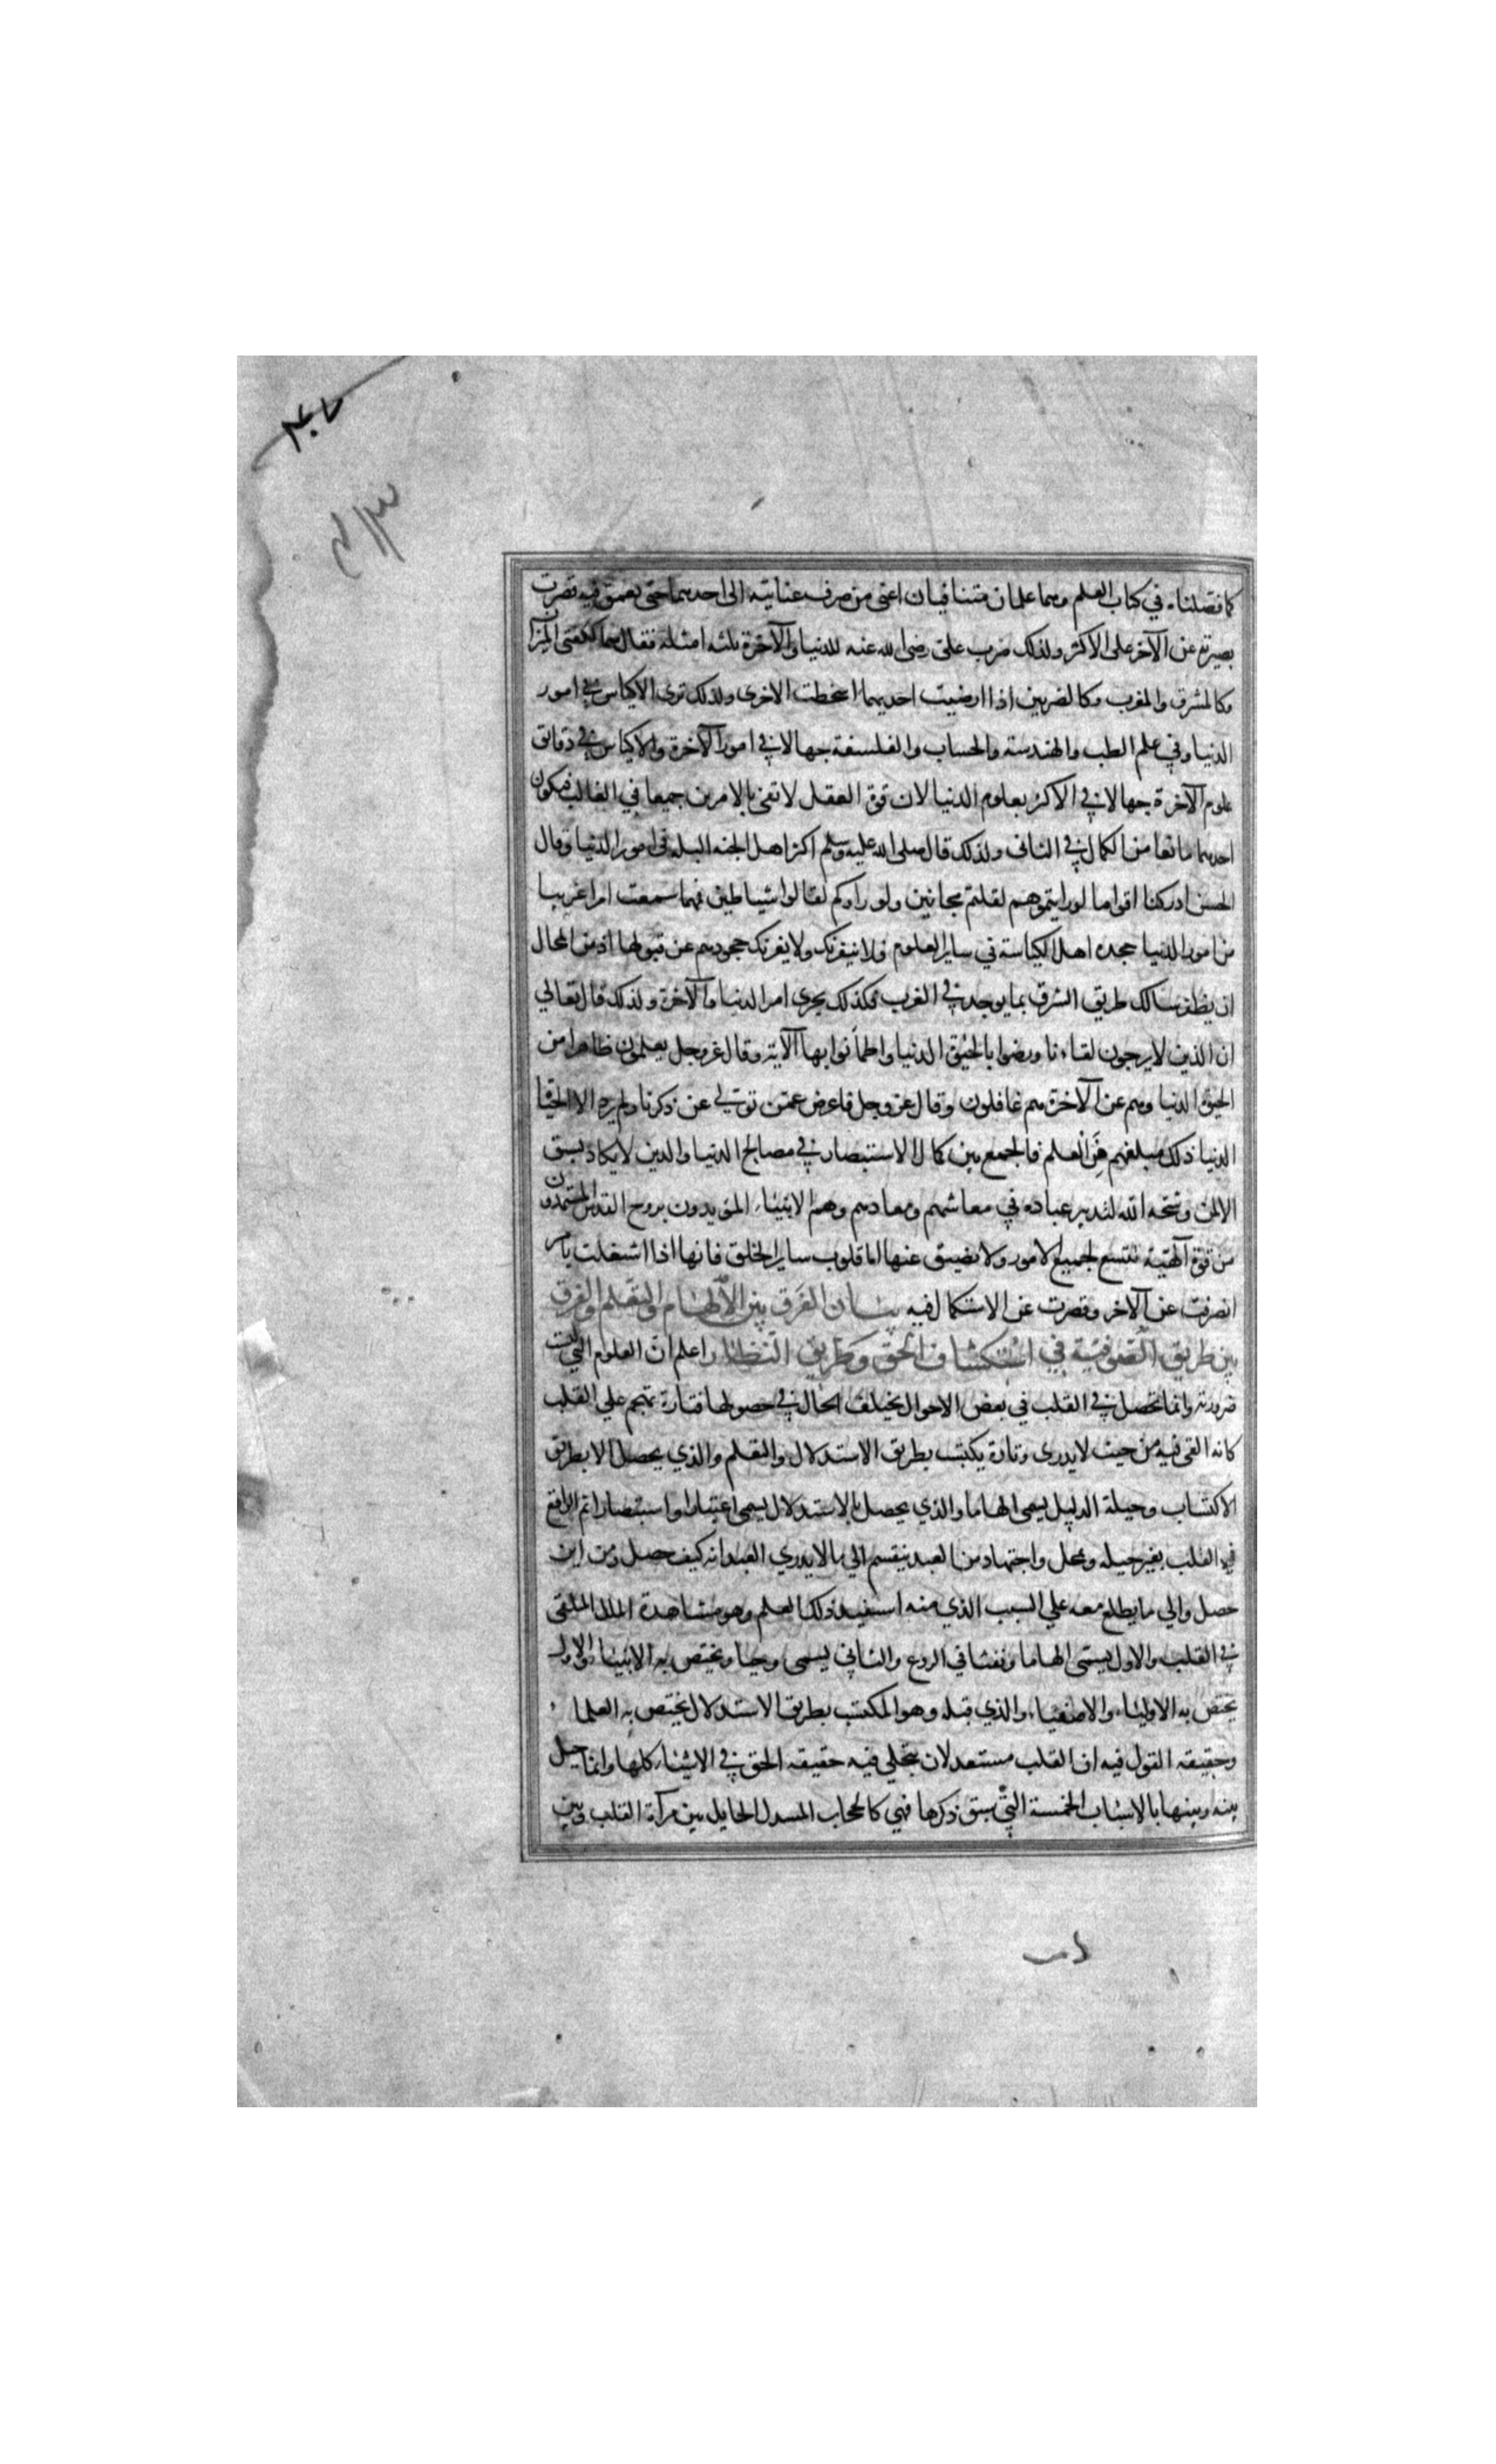 كما فصلناه في كتاب العلم وهما علمان متنافيان اعني من صرف عنايته الى احدهما حتى يعمق فيه قصرت
بصيرته عن الآخر على الاكثر ولذلك ضرب علي رضى الله عنه للدنيا والآخرة ثلثه امثله فقال هما ككفتي الميزان
وكالمشرق والمغرب وكالضرتين اذا ارضيت احديهما اسخطت الاخرى ولذلك ترى الاكياس في امور
الدنيا وفي علم الطب والهندسة والحساب والفلسفة جهالا في امور الآخرة والاكياس في دقايق
علوم الآخرة جهالا في الاكثر بعلوم الدنيا لان قوة العقل لا تفي بالامرين جميعا في الغالب فيكون
احدهما مانعا من الكمال في الثانى ولذلك قال صلى الله عليه وسلم اكثر اهل الجنه البله في امور الدنيا وقال
الحسن ادركنا اقواما لو رايتموهم لقلتم مجانين ولو راوكم لقالوا شياطين فمهما سمعت امرا غريبا
من امور الدنيا جحده اهل الكياسة في ساير العلوم فلا ينفرنك ولا يغرنك جحودهم عن قبولها اذ من المحال
ان يظفر سالك طريق الشرق بما يوجد في الغرب فكذلك يجرى امر الدنيا والآخرة ولذلك قال تعالي
ان الذين لا يرجون لقاءنا ورضوا بالحيوة الدنيا واطمأنوا بها الآية وقال عز وجل يعلمون ظاهرا من
الحيوة الدنيا وهم عن الآخرة هم غافلون وقال عز وجل فاعرض عمن تولي عن ذكرنا ولم يرد الا الحيوة
الدنيا ذلك مبلغهم من العلم فالجمع بين كمال الاستبصار في مصالح الدنيا والدين لا يكاد يسبق
الا لمن رسخه الله لتدبير عباده في معاشهم ومعادهم وهم الانبياء المؤيدون بروح القدس المستمدون
من قوة آلهية تتسع لجميع الامور ولا تضيق عنها اما قلوب ساير الخلق فانها اذا اشتغلت بامر
انصرفت عن الآخر وقصرت عن الاستكمال فيه بيان الفرق بين الالهام والتعلم والفرق
بين طريق الصوفية في استكشاف الحق وطريق النظار اعلم ان العلوم التي ليست
ضرورية وانما تحصل في القلب في بعض الاحوال يختلف الحال في حصولها فتارة تهجم علي القلب
كانه القى فيه من حيث لا يدرى وتارة يكتسب بطريق الاستدلال والتعلم والذي يحصل لا بطريق
الاكتساب وحيلة الدليل يسمى الهاما والذي يحصل بالاستدلال يسمى اعتبارا واستبصارا ثم الواقع
في القلب بغير حيله وتمحل واجتهاد من العبد ينقسم الي ما لا يدري العبد انه كيف حصل ومن اين
حصل والي ما يطلع معه علي السبب الذي منه استفيد ذلك العلم وهو مشاهدة الملك الملقى
في القلب والاول يسمى الهاما ونفثا في الروع والثاني يسمى وحيا ويختص به الانبياء والاول
يختص به الاولياء والاصفياء والذي قبله وهو المكتسب بطريق الاستدلال يختص به العلماء
وحقيقه القول فيه ان القلب مستعد لان يتجلي فيه حقيقه الحق في الاشياء كلها وانما حيل
بينه وبينها بالاسباب الخمسة التي سبق ذكرها فهي كالحجاب المسدل الحايل بين مرآة القلب وبين